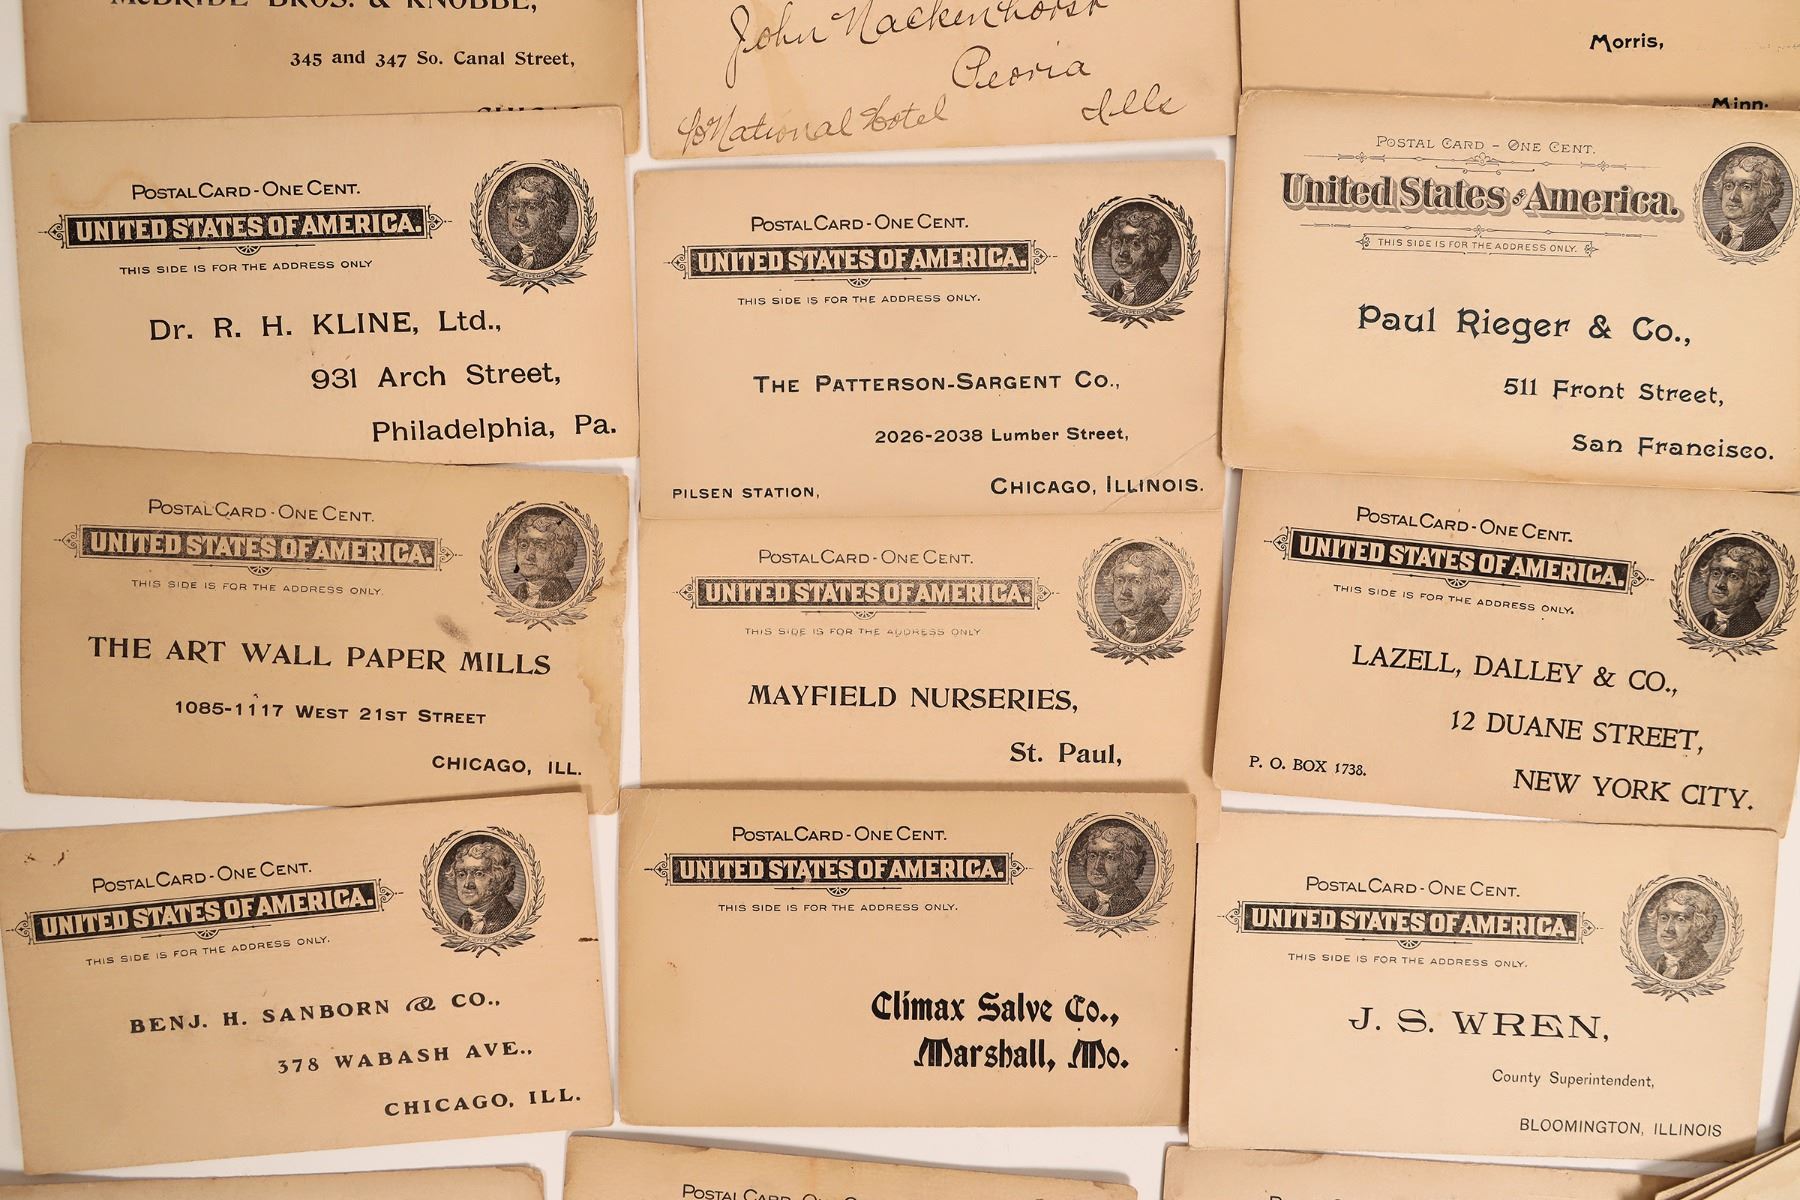 McBRIDE BROS. & KNOBBE,
345 and 347 So. Canal Street,
CHICAGO
John Nackenhorst
Peoria
c/o National Hotel
Ills
Morris,
Minn.
POSTAL CARD - ONE CENT.
UNITED STATES OF AMERICA.
THIS SIDE IS FOR THE ADDRESS ONLY
JEFFERSON
Dr. R. H. KLINE, Ltd.,
931 Arch Street,
Philadelphia, Pa.
POSTAL CARD - ONE CENT.
UNITED STATES OF AMERICA.
THIS SIDE IS FOR THE ADDRESS ONLY.
JEFFERSON
THE PATTERSON-SARGENT CO.,
2026-2038 Lumber Street,
PILSEN STATION,
CHICAGO, ILLINOIS.
POSTAL CARD - ONE CENT.
United States of America.
THIS SIDE IS FOR THE ADDRESS ONLY.
Paul Rieger & Co.,
511 Front Street,
San Francisco.
POSTAL CARD - ONE CENT.
UNITED STATES OF AMERICA.
THIS SIDE IS FOR THE ADDRESS ONLY.
JEFFERSON
THE ART WALL PAPER MILLS
1085-1117 WEST 21ST STREET
CHICAGO, ILL.
POSTAL CARD - ONE CENT.
UNITED STATES OF AMERICA.
THIS SIDE IS FOR THE ADDRESS ONLY
JEFFERSON
MAYFIELD NURSERIES,
St. Paul,
POSTAL CARD - ONE CENT.
UNITED STATES OF AMERICA.
THIS SIDE IS FOR THE ADDRESS ONLY.
JEFFERSON
LAZELL, DALLEY & CO.,
12 DUANE STREET,
P. O. BOX 1738.
NEW YORK CITY.
POSTAL CARD - ONE CENT.
UNITED STATES OF AMERICA.
THIS SIDE IS FOR THE ADDRESS ONLY.
JEFFERSON
BENJ. H. SANBORN & CO.,
378 WABASH AVE.,
CHICAGO, ILL.
POSTAL CARD - ONE CENT.
UNITED STATES OF AMERICA.
THIS SIDE IS FOR THE ADDRESS ONLY.
JEFFERSON
Climax Salve Co.,
Marshall, Mo.
POSTAL CARD - ONE CENT.
UNITED STATES OF AMERICA.
THIS SIDE IS FOR THE ADDRESS ONLY.
JEFFERSON
J. S. WREN,
County Superintendent,
BLOOMINGTON, ILLINOIS
POSTAL CARD - ONE CENT.